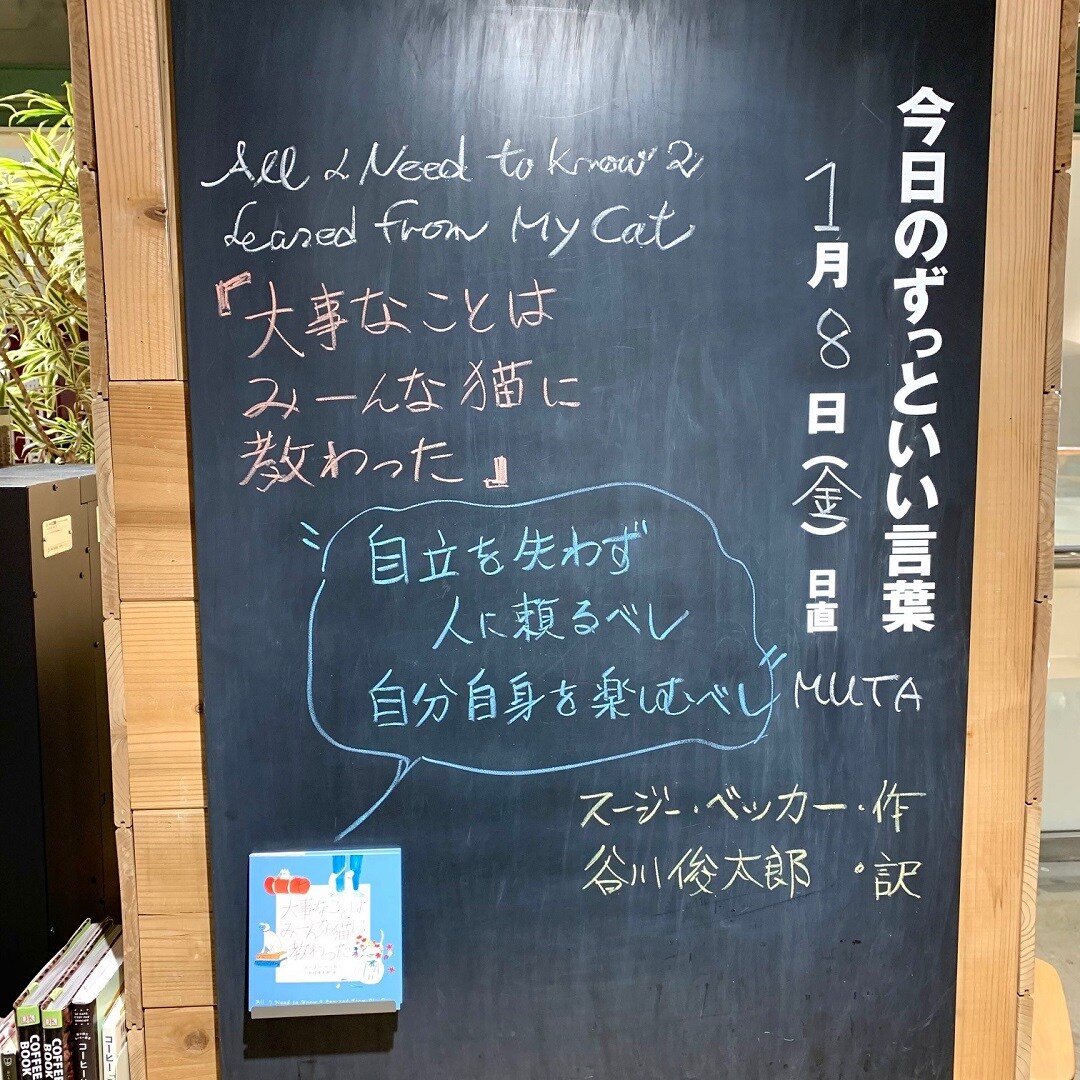 今日のずっといい言葉
1月8日(金)日直
MUTA
All I Need to Know I
Leaned From My Cat
『大事なことは
みーんな猫に
教わった』
自立を失わず
人に頼るべし
自分自身を楽しむべし
スージー・ベッカー・作
谷川俊太郎・訳
大事なことは
みーんな猫に
教わった
DK
COFFEE
BOOK
DK
COFFEE
BOOK
コーヒー